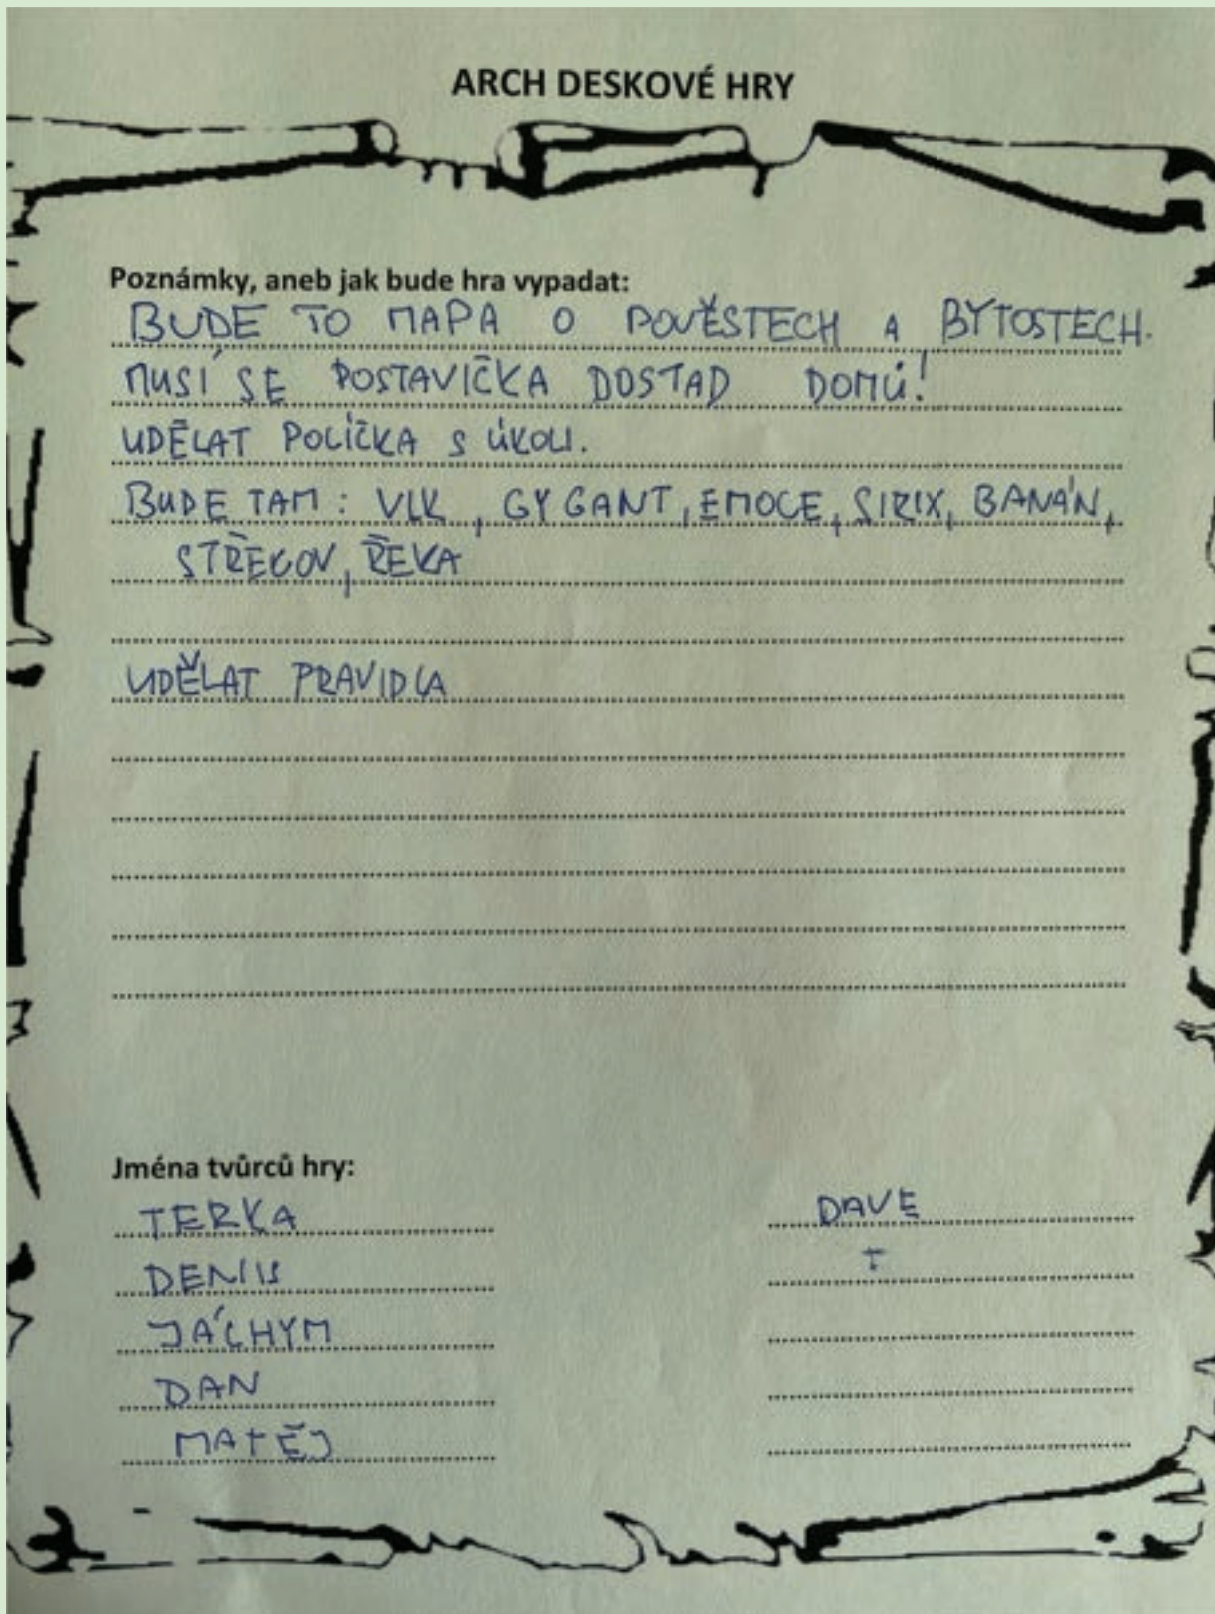 ARCH DESKOVÉ HRY
Poznámky, aneb jak bude hra vypadat:
BUDE TO MAPA O POVĚSTECH A BYTOSTECH.
MUSÍ SE POSTAVIČKA DOSTAD DOMŮ!
UDĚLAT POLÍČKA S ÚKOLI.
BUDE TAM: VLK, GYGANT, EMOCE, SIRIX, BANÁN,
STŘEKOV, ŘEKA
UDĚLAT PRAVIDLA
Jména tvůrců hry:
TERKA
DENIS
JÁCHYM
DAN
MATĚJ
DAVE
I